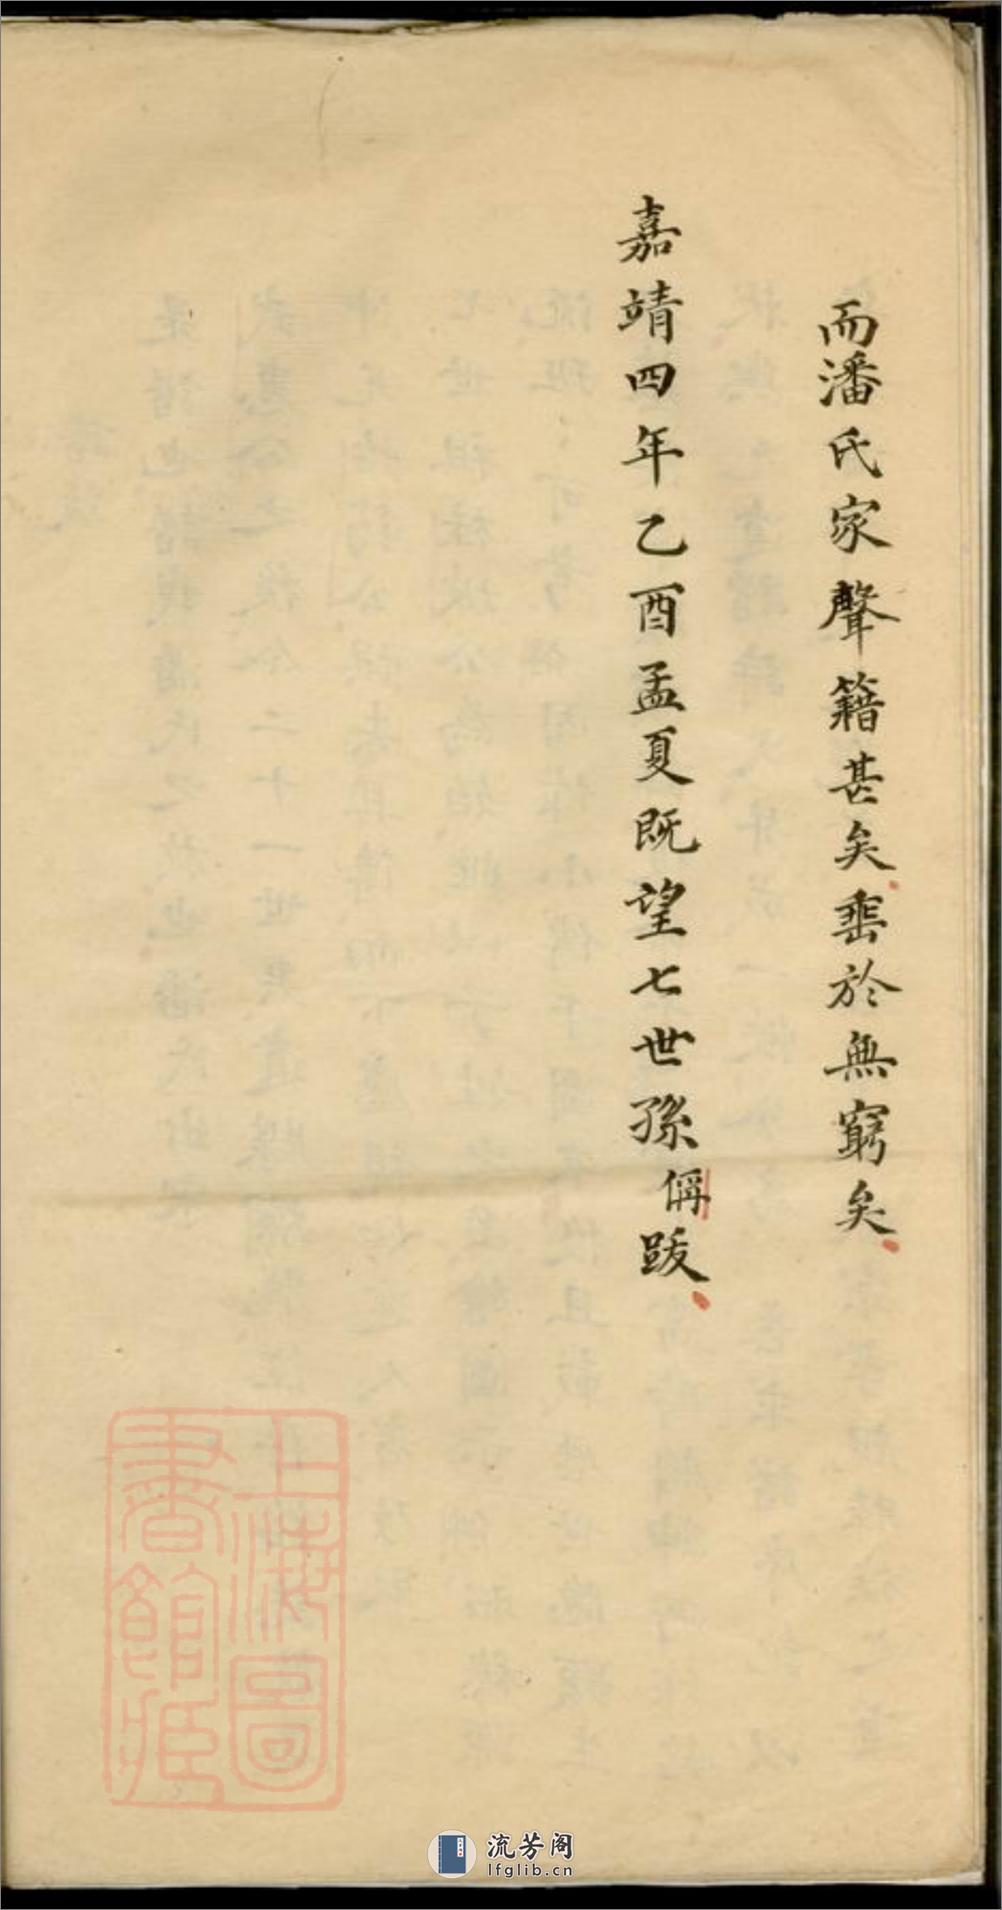 而潘氏家聲籍甚矣垂於無窮矣
嘉靖四年乙酉孟夏既望七世孫偁跋
上海圖
書館藏
流芳阁
lfglib.cn